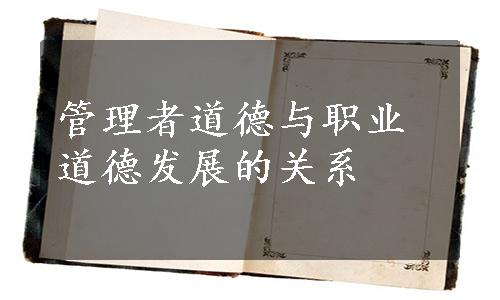 管理者道德与职业
道德发展的关系